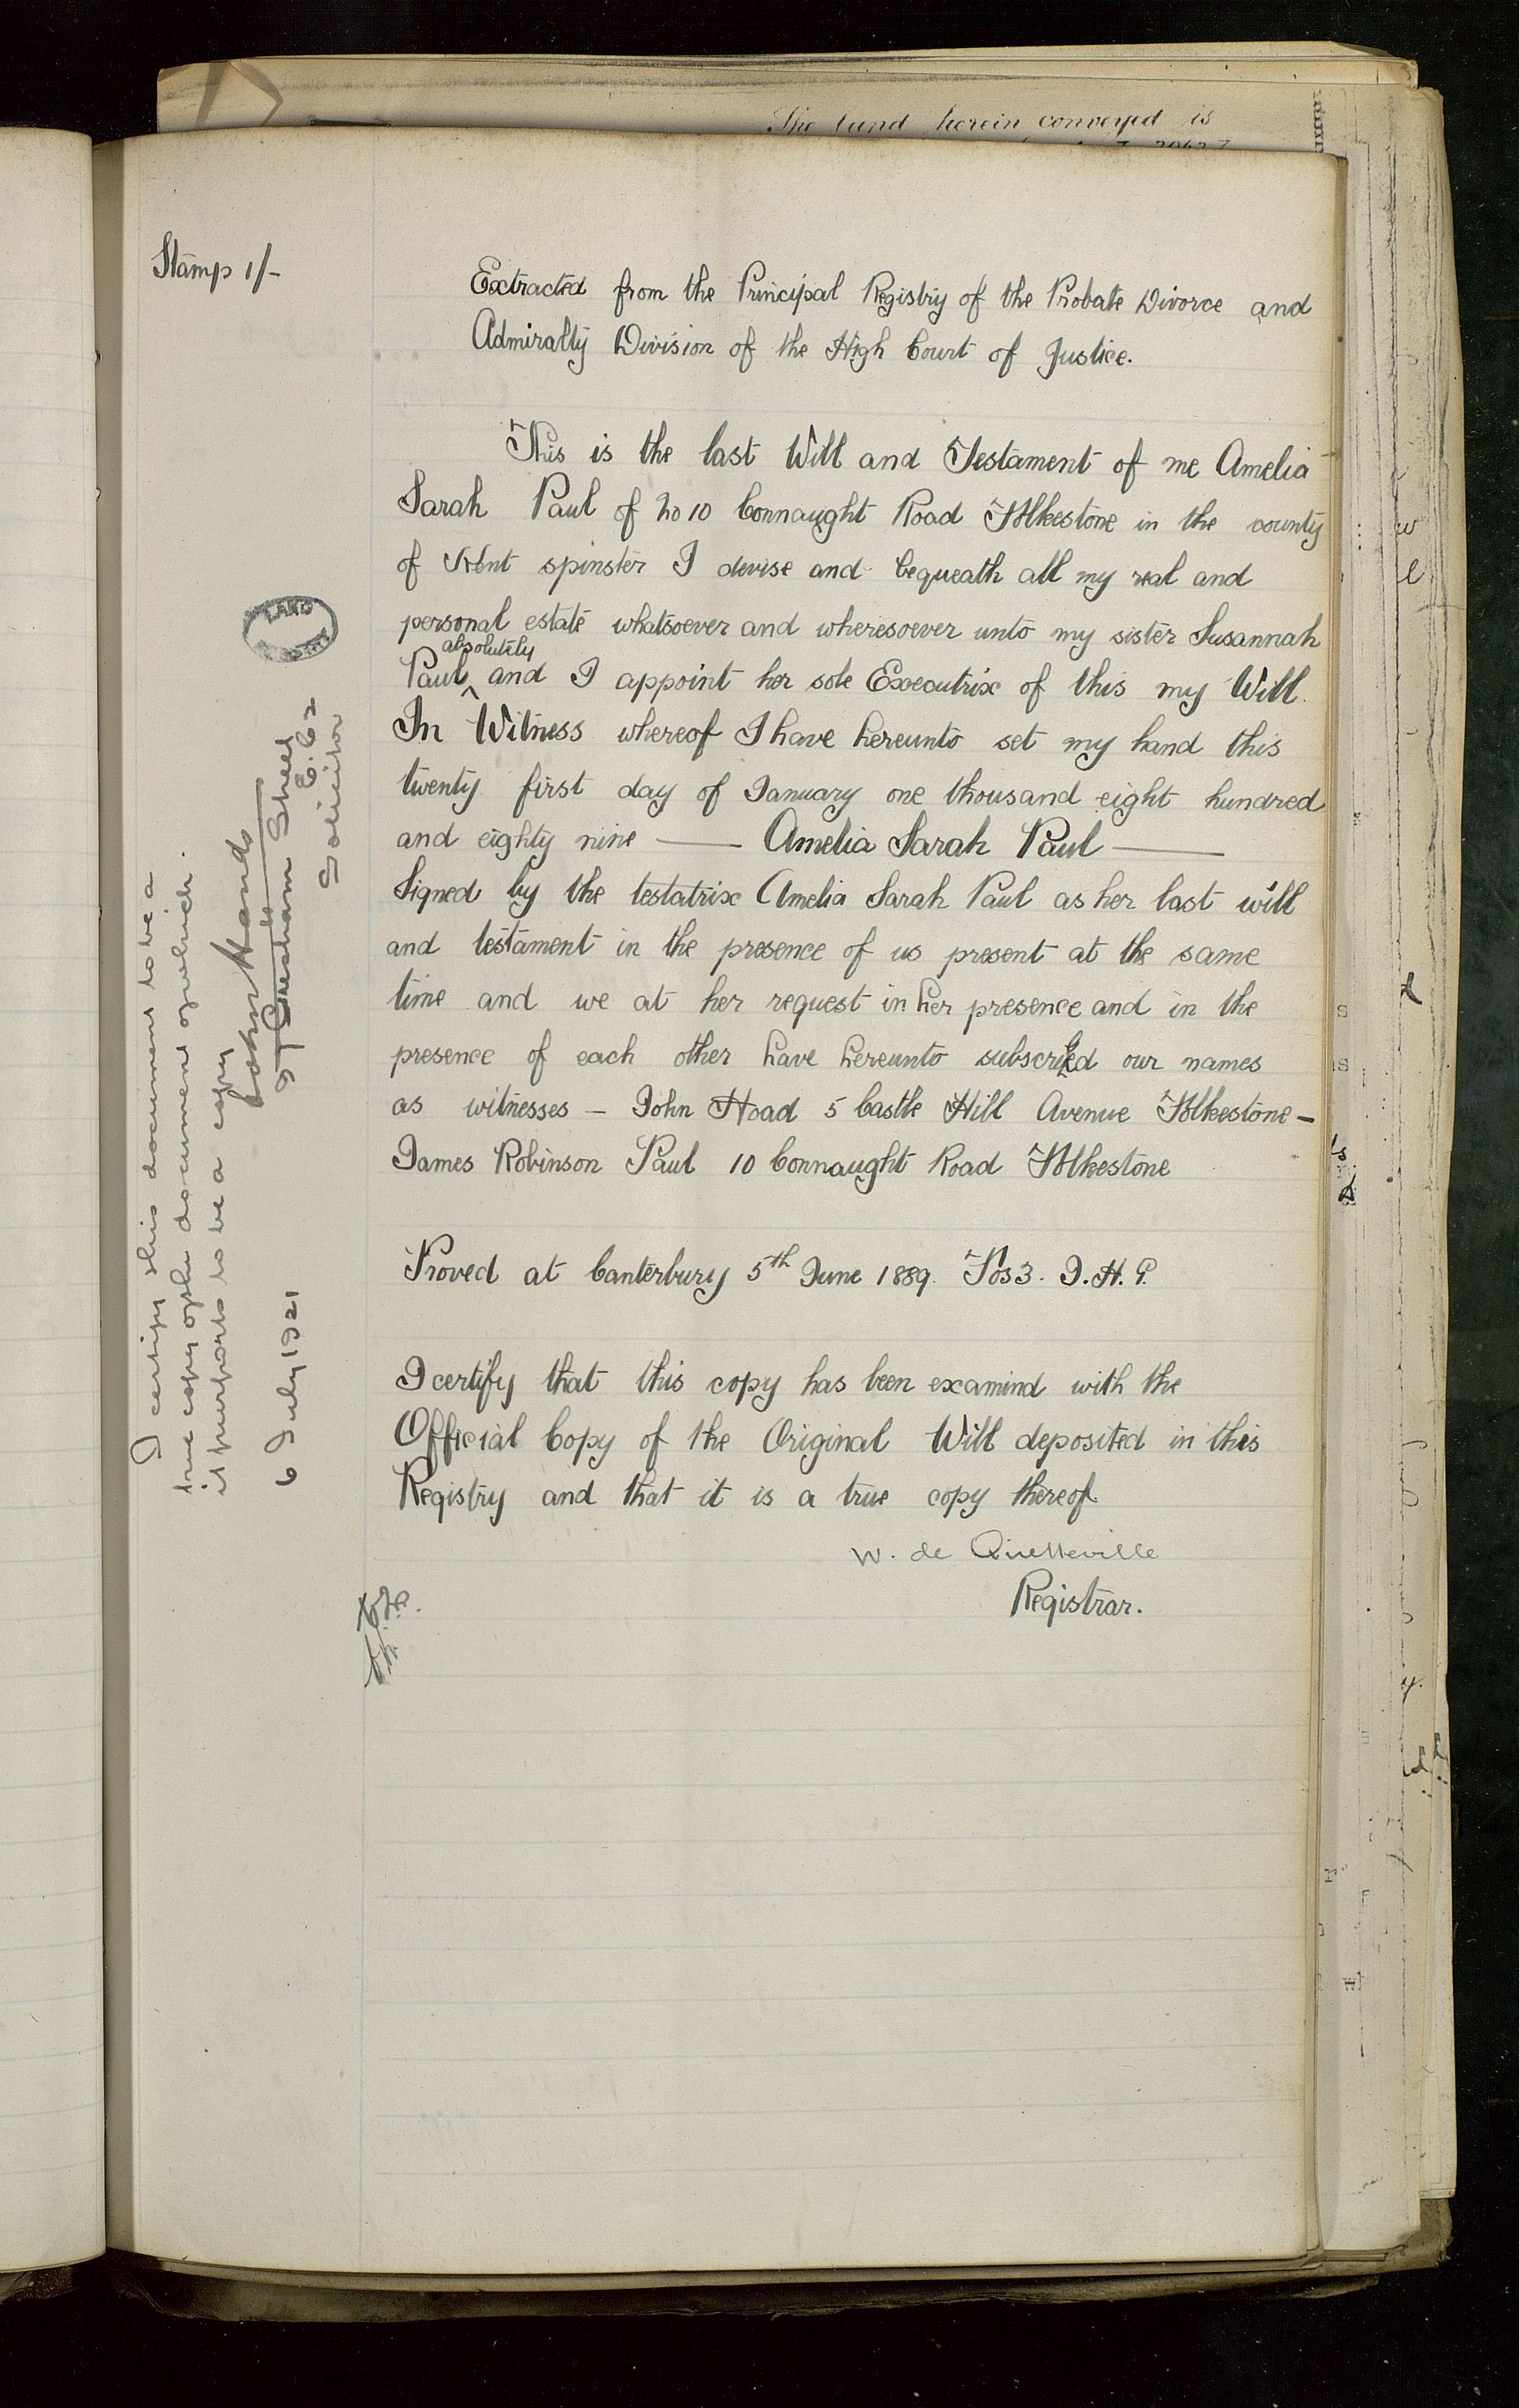 The land herein conveyed is
Stamp 1/-
Extracted from the Principal Registry of the Probate Divorce and
Admiralty Division of the High Court of Justice.
This is the last Will and Testament of me Amelia
Sarah Paul of No 10 Connaught Road Folkestone in the county
of Kent spinster I devise and bequeath all my real and
personal estate whatsoever and wheresoever unto my sister Susannah
absolutely
Paul ^ and I appoint her sole Executrix of this my Will.
In Witness whereof I have hereunto set my hand this
twenty first day of January one thousand eight hundred
and eighty nine — Amelia Sarah Paul —
Signed by the testatrix Amelia Sarah Paul as her last will
and testament in the presence of us present at the same
time and we at her request in her presence and in the
presence of each other have hereunto subscribed our names
as witnesses – John Hoad 5 Castle Hill Avenue Folkestone –
James Robinson Paul 10 Connaught Road Folkestone
Proved at Canterbury 5th June 1889. Fos 3. J.H.P.
I certify that this copy has been examind with the
Official Copy of the Original Will deposited in this
Registry and that it is a true copy thereof.
W. de Quetteville
Registrar.
I certify this document to be a
true copy of the document of which
it purports to be a copy
John Hands
Gresham Street
E.C.2
Solicitor
6 July 1921
LAND